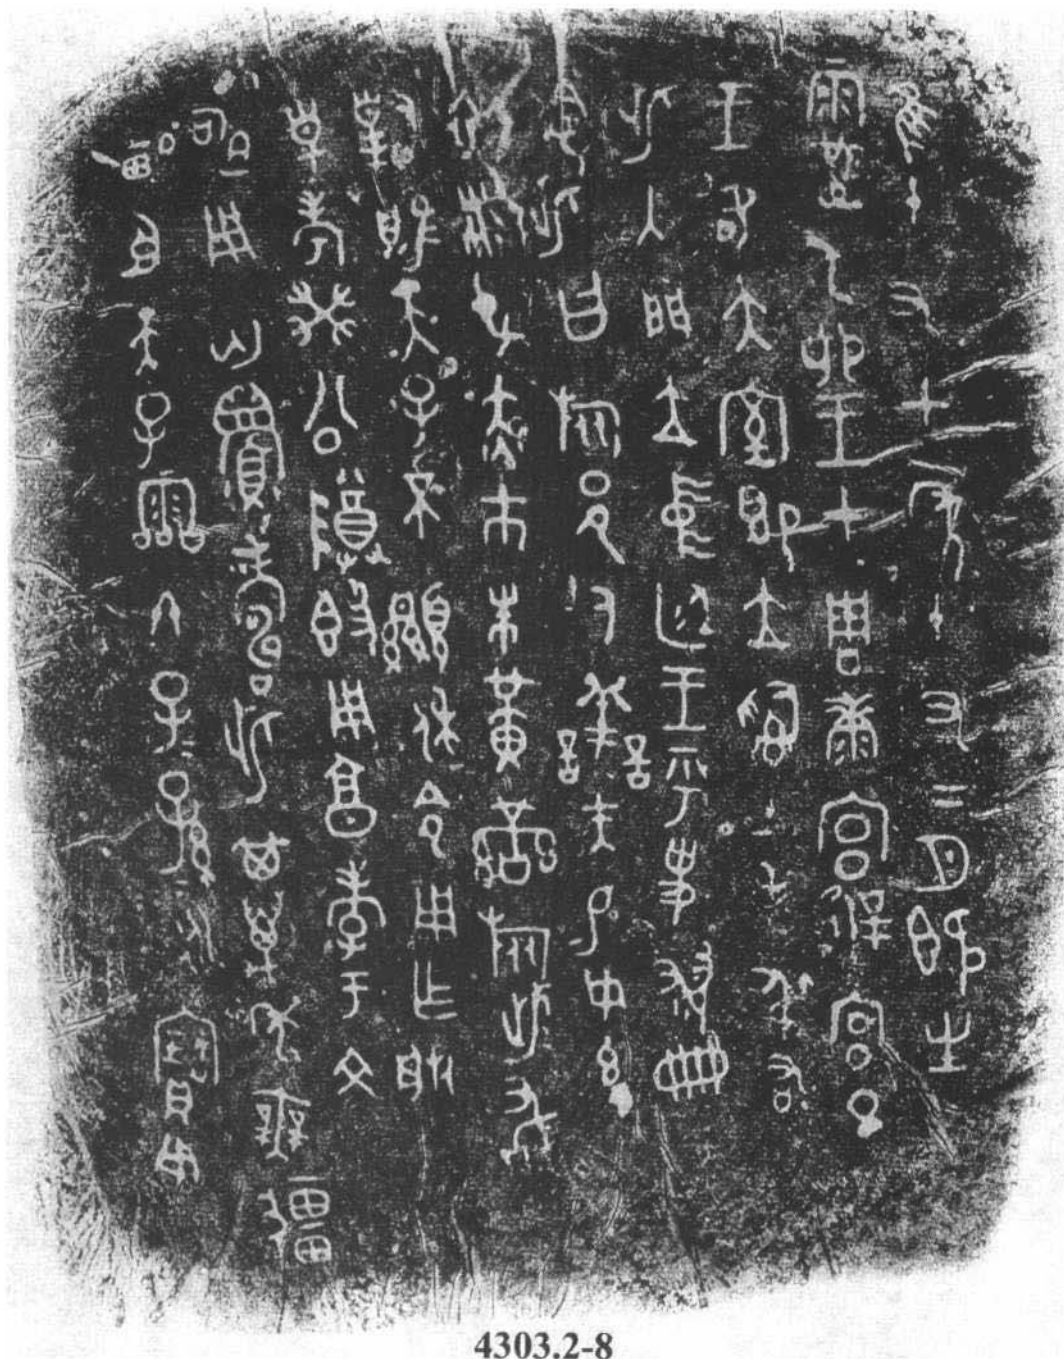 隹十又七年十又二月既生
霸乙卯王才周康宮𢓊宮旦
王各大室即立𤔲土毛弔右
此入門立中廷王乎史翏冊
令此曰旅邑人善夫易女玄
衣黹屯赤巿朱黃䜌旅此敢
對揚天子不顯休令用乍朕
皇考癸公尊𣪘用亯孝于文
申用匄眉壽此其萬年無彊
畯臣天子霝冬子子孫孫永寶用
4303.2-8